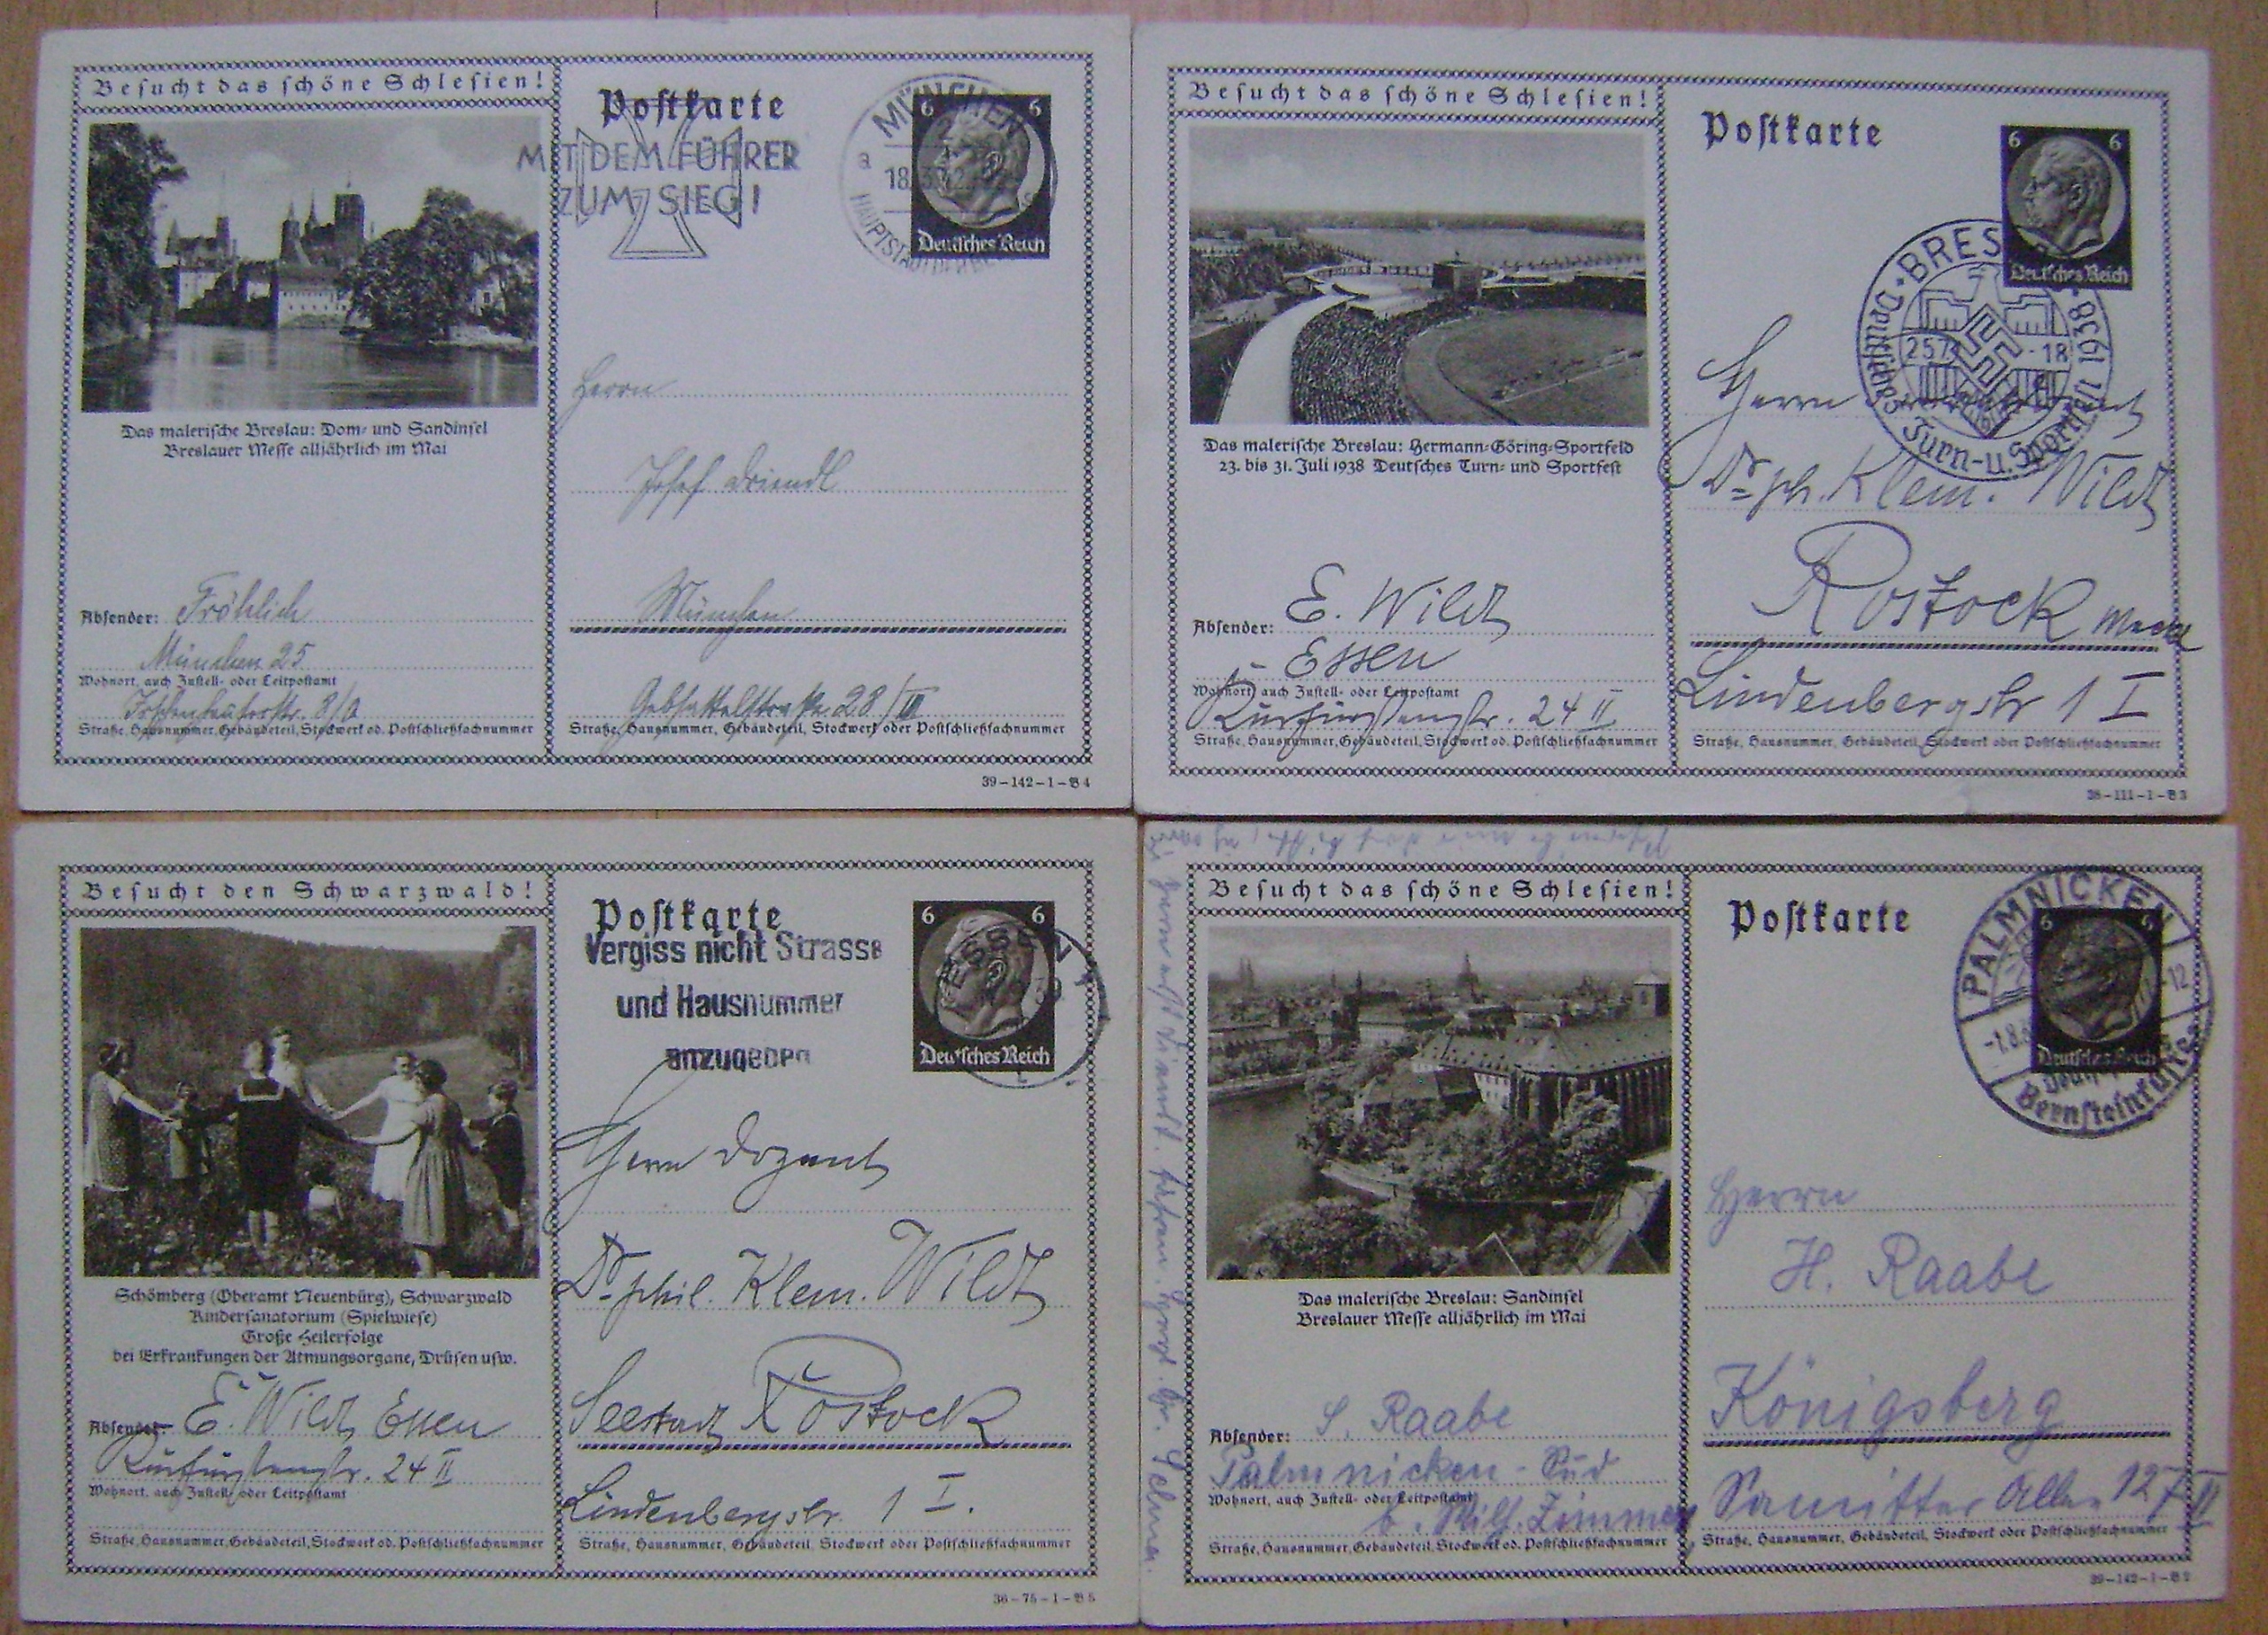 Besucht das schöne Schlesien!
Postkarte
MIT DEM FÜHRER
ZUM SIEG!
MÜNCHEN
a
18
HAUPTSTADT DER
6 6
Deutsches Reich
Das malerische Breslau: Dom- und Sandinsel
Breslauer Messe alljährlich im Mai
Herrn
Josef
München
28/III
Absender: Fröhlich
München 25
Wohnort, auch Zustell- oder Leitpostamt
8/0
Straße, Hausnummer, Gebäudeteil, Stockwerk od. Postschließfachnummer
Straße, Hausnummer, Gebäudeteil, Stockwerk oder Postschließfachnummer
39-142-1-B 4
Besucht das schöne Schlesien!
Postkarte
6 6
Deutsches Reich
BRES 1938
Deutsches Turn- u. Sportfest
257 -18
Das malerische Breslau: Hermann-Göring-Sportfeld
23. bis 31. Juli 1938 Deutsches Turn- und Sportfest
Herrn
Dr. ph. Klem. Wildt
Rostock Meckl
Lindenbergstr 1 I
Absender: E. Wildt
Essen
Wohnort, auch Zustell- oder Leitpostamt
Kurfürstenstr. 24 II
Straße, Hausnummer, Gebäudeteil, Stockwerk od. Postschließfachnummer
Straße, Hausnummer, Gebäudeteil, Stockwerk oder Postschließfachnummer
38-111-1-B 3
Besucht den Schwarzwald!
Postkarte
Vergiss nicht Strasse
und Hausnummer
anzugeben
ESSEN 1
6 6
Deutsches Reich
Schömberg (Oberamt Neuenbürg), Schwarzwald
Kindersanatorium (Spielwiese)
Große Heilerfolge
bei Erkrankungen der Atmungsorgane, Drüsen usw.
Herrn Dozent
Dr. phil. Klem. Wildt
Seestadt Rostock
Lindenbergstr. 1 I.
Absender: E. Wildt, Essen
Kurfürstenstr. 24 II
Wohnort, auch Zustell- oder Leitpostamt
Straße, Hausnummer, Gebäudeteil, Stockwerk od. Postschließfachnummer
Straße, Hausnummer, Gebäudeteil, Stockwerk oder Postschließfachnummer
36-75-1-B 5
Besucht das schöne Schlesien!
Postkarte
PALMNICKEN
-1.8. -12
Bernsteinküste
6 6
Deutsches Reich
Das malerische Breslau: Sandinsel
Breslauer Messe alljährlich im Mai
Herrn
H. Raabe
Königsberg
Samitter Allee 127 II
Absender: S. Raabe
Palmnicken - Süd
Wohnort, auch Zustell- oder Leitpostamt
b. Zimmer
Straße, Hausnummer, Gebäudeteil, Stockwerk od. Postschließfachnummer
Straße, Hausnummer, Gebäudeteil, Stockwerk oder Postschließfachnummer
39-142-1-B 2